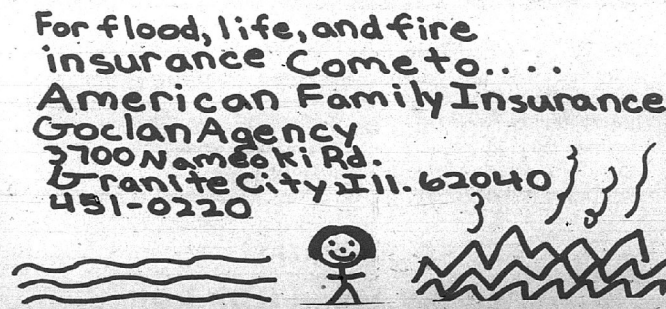 For flood, life, and fire
insurance Come to....
American Family Insurance
Goclan Agency
3700 Nameoki Rd.
Granite City, Ill. 62040
451-0220